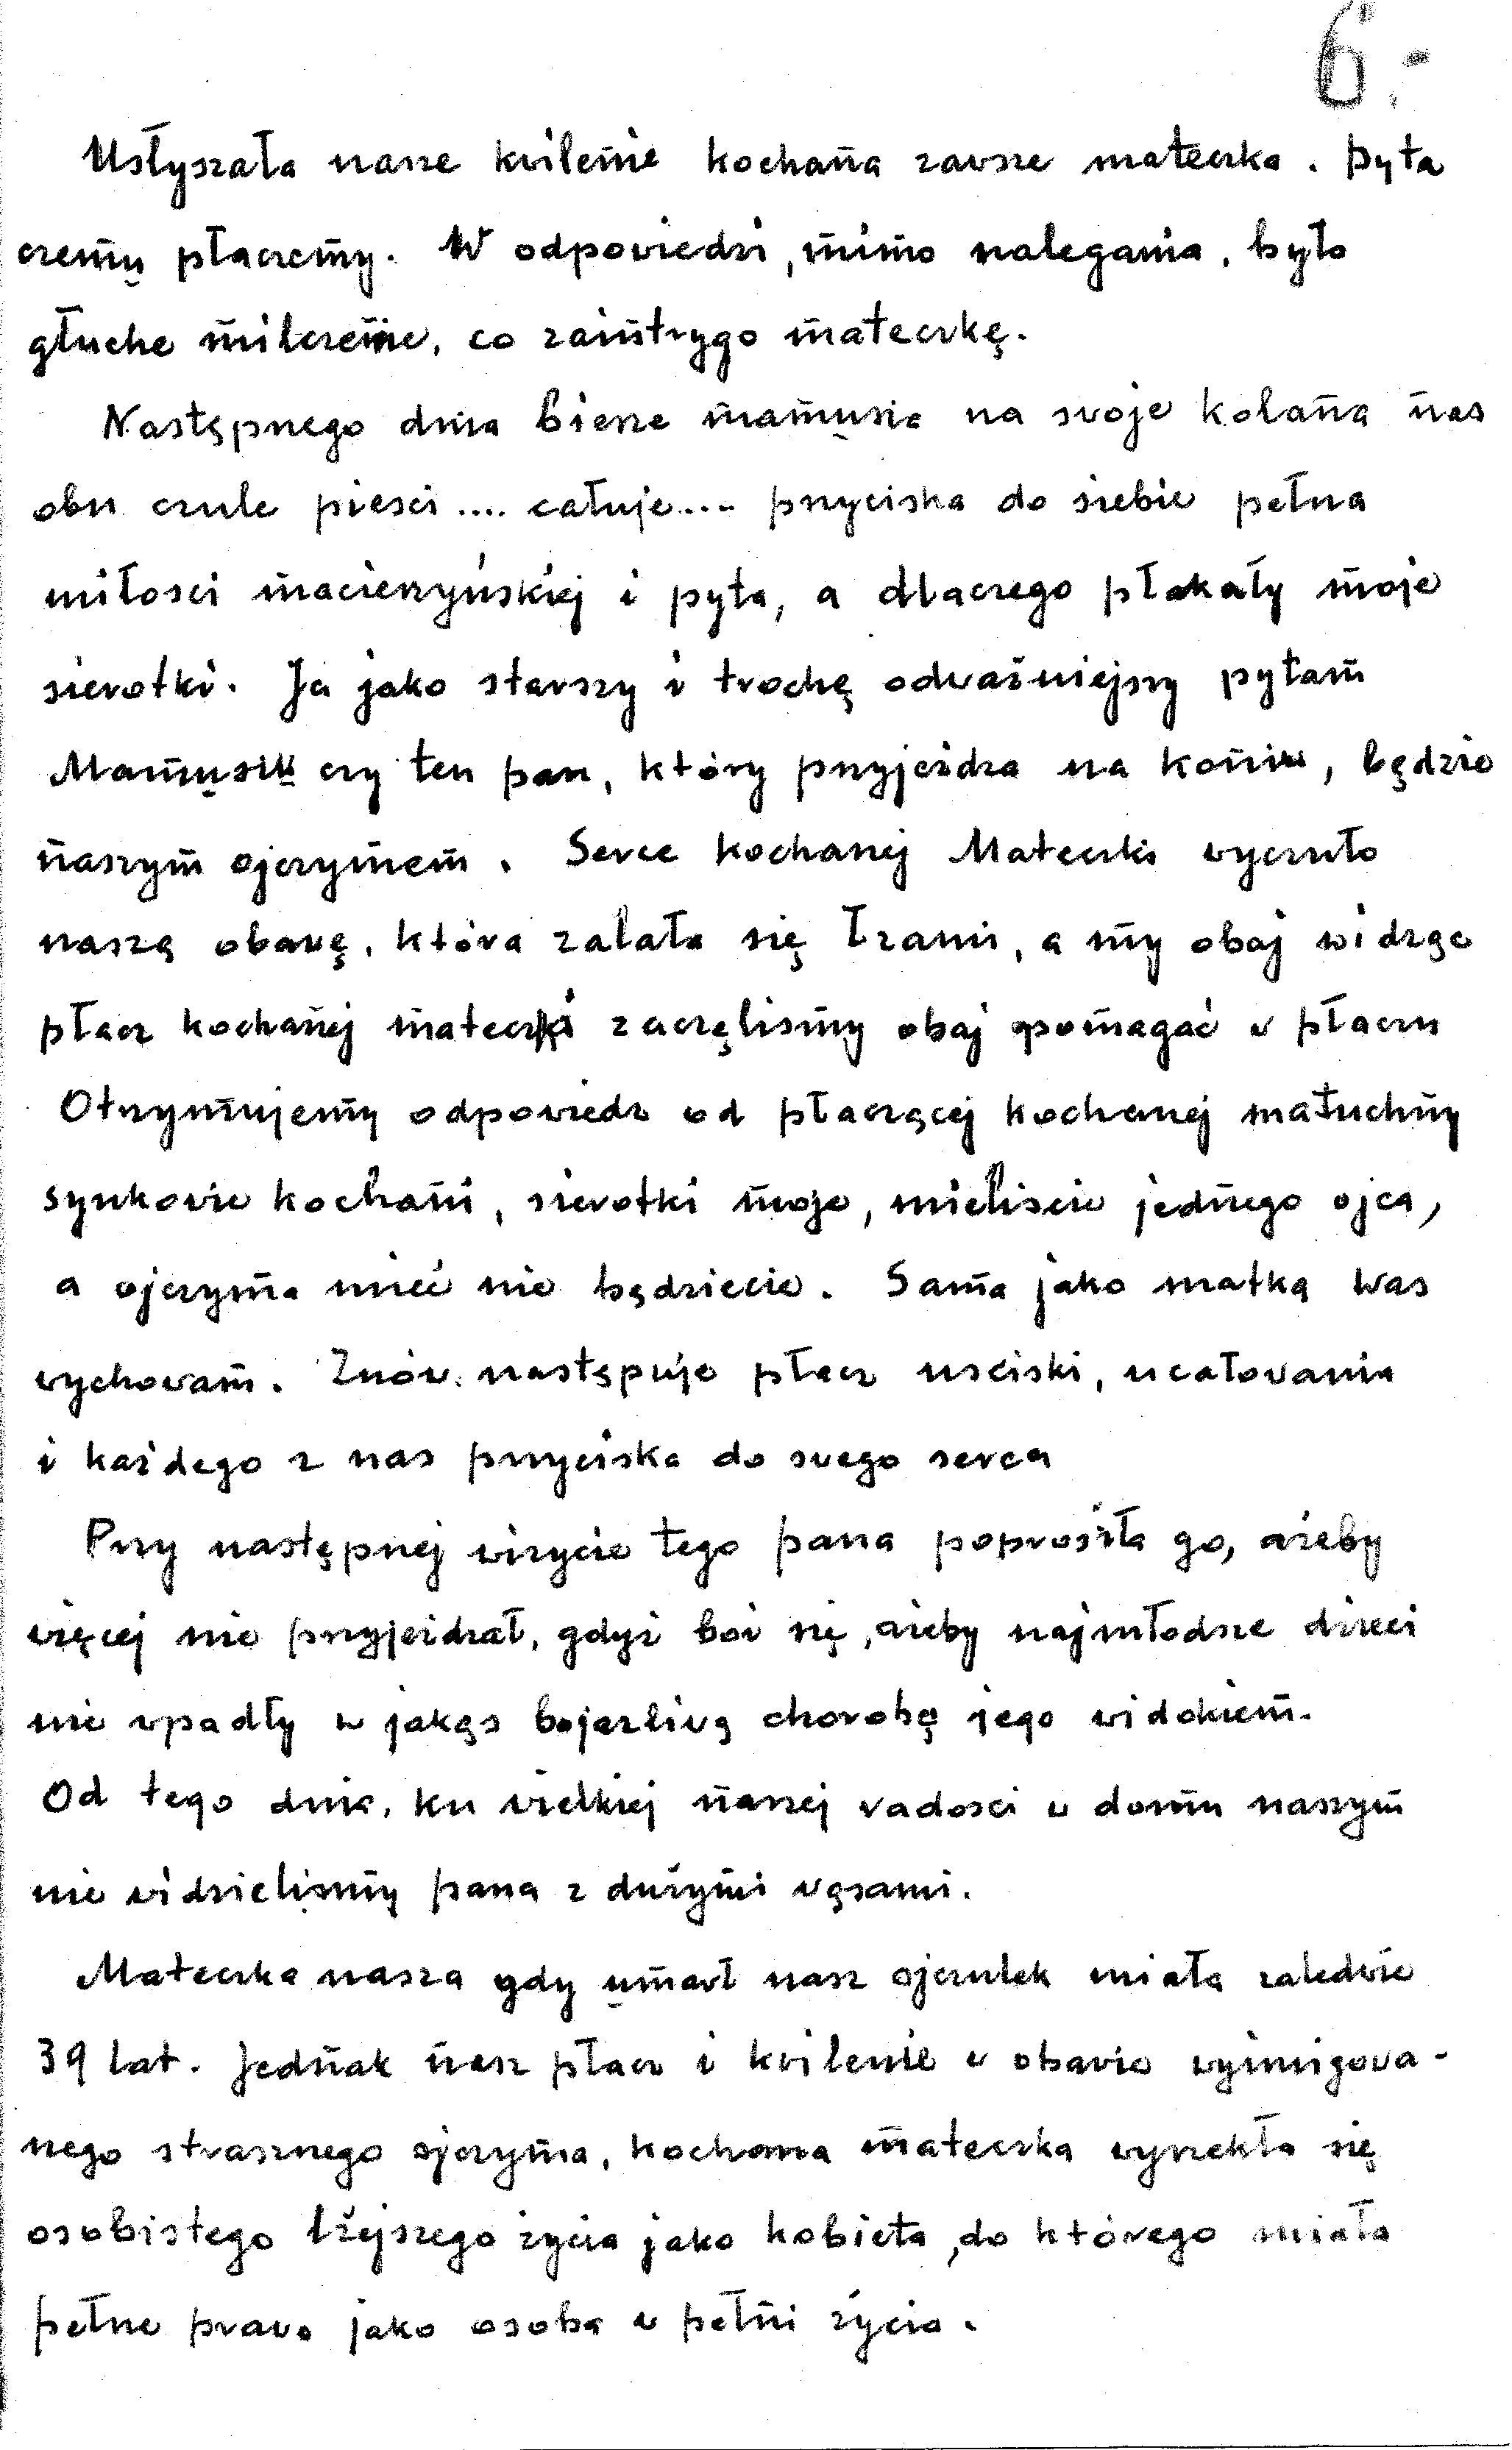 6.-
Usłyszała nasze kwilenie kochana zawsze mateczka. pyta
czemu płaczemy. W odpowiedzi, mimo nalegania, było
głuche milczenie, co zaintrygo mateczkę.
Następnego dnia bierze mamusia na swoje kolana nas
obu czule piesci .... całuje.... przyciska do siebie pełna
miłosci macierzyńskiej i pyta, a dlaczego płakały moje
sierotki. Ja jako starszy i trochę odważniejszy pytam
Mamusiu czy ten pan, który przyjeżdza na koniu, będzie
naszym ojczymem. Serce kochanej Mateczki wyczuło
naszą obawę, która zalała się łzami, a my obaj widząc
płacz kochanej mateczki zaczęlismy obaj pomagać w płaczu
Otrzymujemy odpowiedz od płaczącej kochanej matuchny
synkowie kochani, sierotki moje, mieliscie jednego ojca,
a ojczyma mieć nie będziecie. Sama jako matka was
wychowam. Znów następuje płacz usciski, ucałowania
i każdego z nas przyciska do swego serca
Przy następnej wizycie tego pana poprosiła go, ażeby
więcej nie przyjeżdzał, gdyż boi się, ażeby najmłodsze dzieci
nie wpadły w jakąs bojazliwą chorobę jego widokiem.
Od tego dnia, ku wielkiej naszej radosci w domu naszym
nie widzielismy pana z dużymi wąsami.
Mateczka nasza gdy umarł nasz ojczulek miała zaledwie
39 lat. Jednak nasz płacz i kwilenie w obawie wyimigowa-
nego strasznego ojczyma, kochana mateczka wyrzekła się
osobistego lżejszego życia jako kobieta, do którego miała
pełne prawo jako osoba w pełni życia.